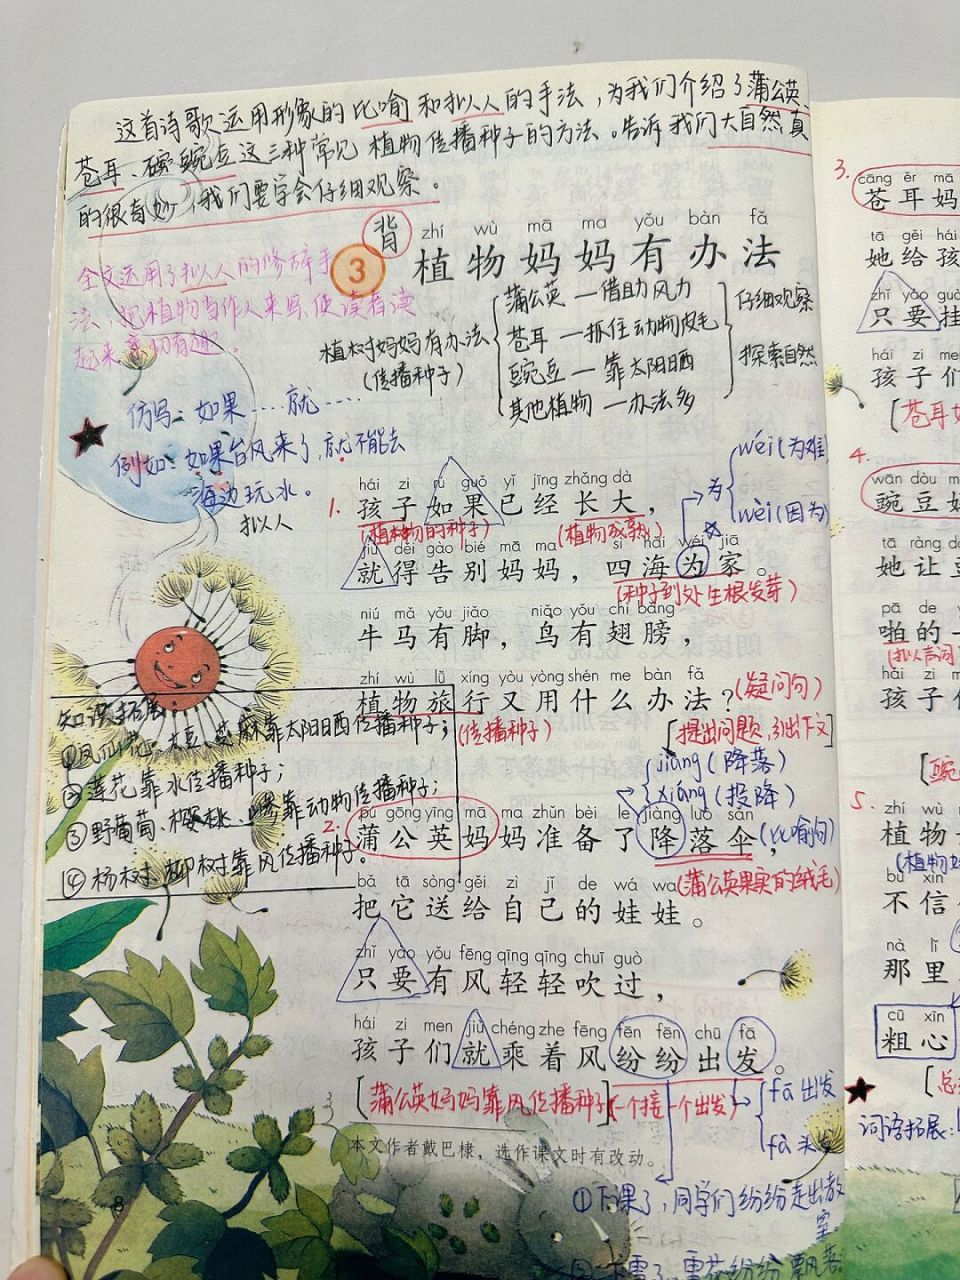 这首诗歌运用形象的比喻和拟人的手法,为我们介绍了蒲公英、
苍耳、豌豆这三种常见植物传播种子的方法。告诉我们大自然真
的很奇妙,我们要学会仔细观察。
背
zhí wù mā ma yǒu bàn fǎ
3 植物妈妈有办法
全文运用了拟人的修辞手
法,把植物当作人来写,使读者读
起来亲切有趣。
植树妈妈有办法
(传播种子)
蒲公英—借助风力
苍耳—抓住动物皮毛
豌豆—靠太阳晒
其他植物—办法多
仔细观察
探索自然
仿写:如果……就……
例如:如果台风来了,就不能去
海边玩水。
拟人
为
wéi(为难)
wèi(因为)
hái zi rú guǒ yǐ jīng zhǎng dà
1. 孩子如果已经长大,
(植物的种子) (植物成熟)
jiù děi gào bié mā ma sì hǎi wéi jiā
就得告别妈妈,四海为家。
(种子到处生根发芽)
niú mǎ yǒu jiǎo niǎo yǒu chì bǎng
牛马有脚,鸟有翅膀,
zhí wù lǚ xíng yòu yòng shén me bàn fǎ
植物旅行又用什么办法?(疑问句)
(传播种子) [提出问题,引出下文]
知识拓展
①凤仙花、大豆、芝麻靠太阳晒传播种子;
②莲花靠水传播种子;
③野葡萄、樱桃、靠动物传播种子;
④杨树、柳树靠风传播种子。
jiàng(降落)
xiáng(投降)
pú gōng yīng mā ma zhǔn bèi le jiàng luò sǎn
2. 蒲公英妈妈准备了降落伞,(比喻句)
(蒲公英果实的绒毛)
bǎ tā sòng gěi zì jǐ de wá wa
把它送给自己的娃娃。
zhǐ yào yǒu fēng qīng qīng chuī guò
只要有风轻轻吹过,
hái zi men jiù chéng zhe fēng fēn fēn chū fā
孩子们就乘着风纷纷出发。
[蒲公英妈妈靠风传播种子] (一个接一个出发)
fā 出发
fà 头发
本文作者戴巴棣,选作课文时有改动。
①下课了,同学们纷纷走出教
室。
②下雪了,雪花纷纷飘落。
8
3.
cāng ěr mā
苍耳妈
tā gěi hái
她给孩
zhǐ yào guà
只要挂
hái zi me
孩子们
[苍耳妈
4.
wān dòu mā
豌豆妈
tā ràng dò
她让豆
pā de y
啪的一
(拟声词)
hái zi
孩子们
[豌豆
5.
zhí wù
植物
(植物妈
bú xìn
不信
nà lǐ
那里
cū xīn
粗心
[总
词语拓展: